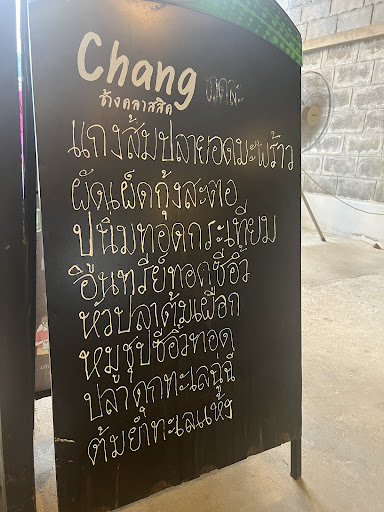 Chang
ช้างคลาสสิค
แกงส้มปลายอดมะพร้าว
ผัดเผ็ดกุ้งสะตอ
ปูนิ่มทอดกระเทียม
อินทรีย์ทอดซีอิ้ว
หัวปลาต้มเผือก
หมูชุปซีอิ้วทอด
ปลาดุกทะเลฉู่ฉี่
ต้มยำทะเลแห้ง